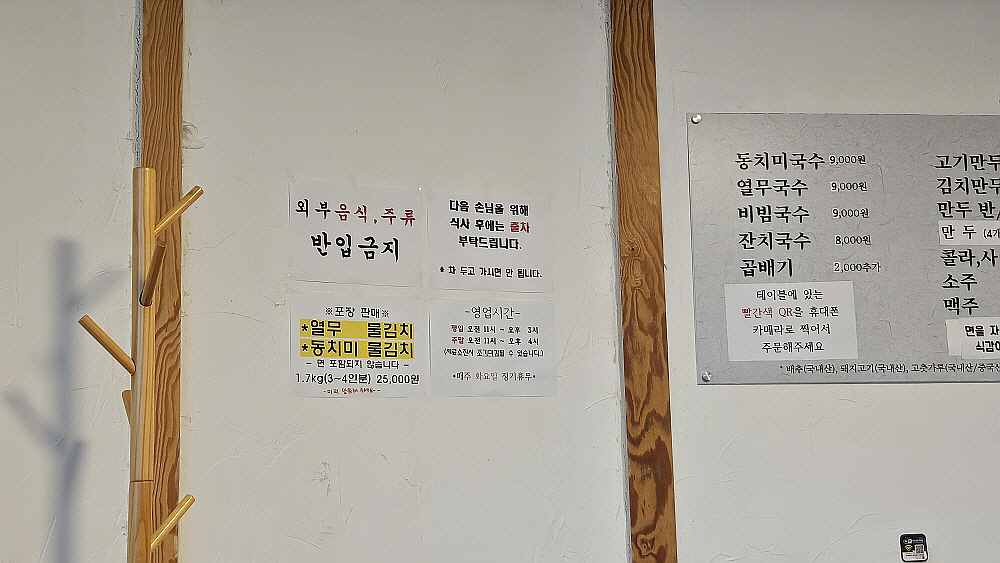 외부음식,주류
반입금지
다음 손님을 위해
식사 후에는 출차
부탁드립니다.
* 차 두고 가시면 안 됩니다.
※포장 판매※
*열무 물김치
*동치미 물김치
- 면 포함되지 않습니다 -
1.7kg(3~4인분) 25,000원
-영업시간-
평일 오전 11시 ~ 오후 3시
주말 오전 11시 ~ 오후 4시
(재료소진시 조기마감될 수 있습니다.)
*매주 화요일 정기휴무*
동치미국수 9,000원
열무국수 9,000원
비빔국수 9,000원
잔치국수 8,000원
곱배기 2,000추가
테이블에 있는
빨간색 QR을 휴대폰
카메라로 찍어서
주문해주세요
고기만두
김치만두
만두 반/
만 두 (4개
콜라,사
소주
맥주
면을 자
식감이
* 배추(국내산), 돼지고기(국내산), 고춧가루(국내산/중국산